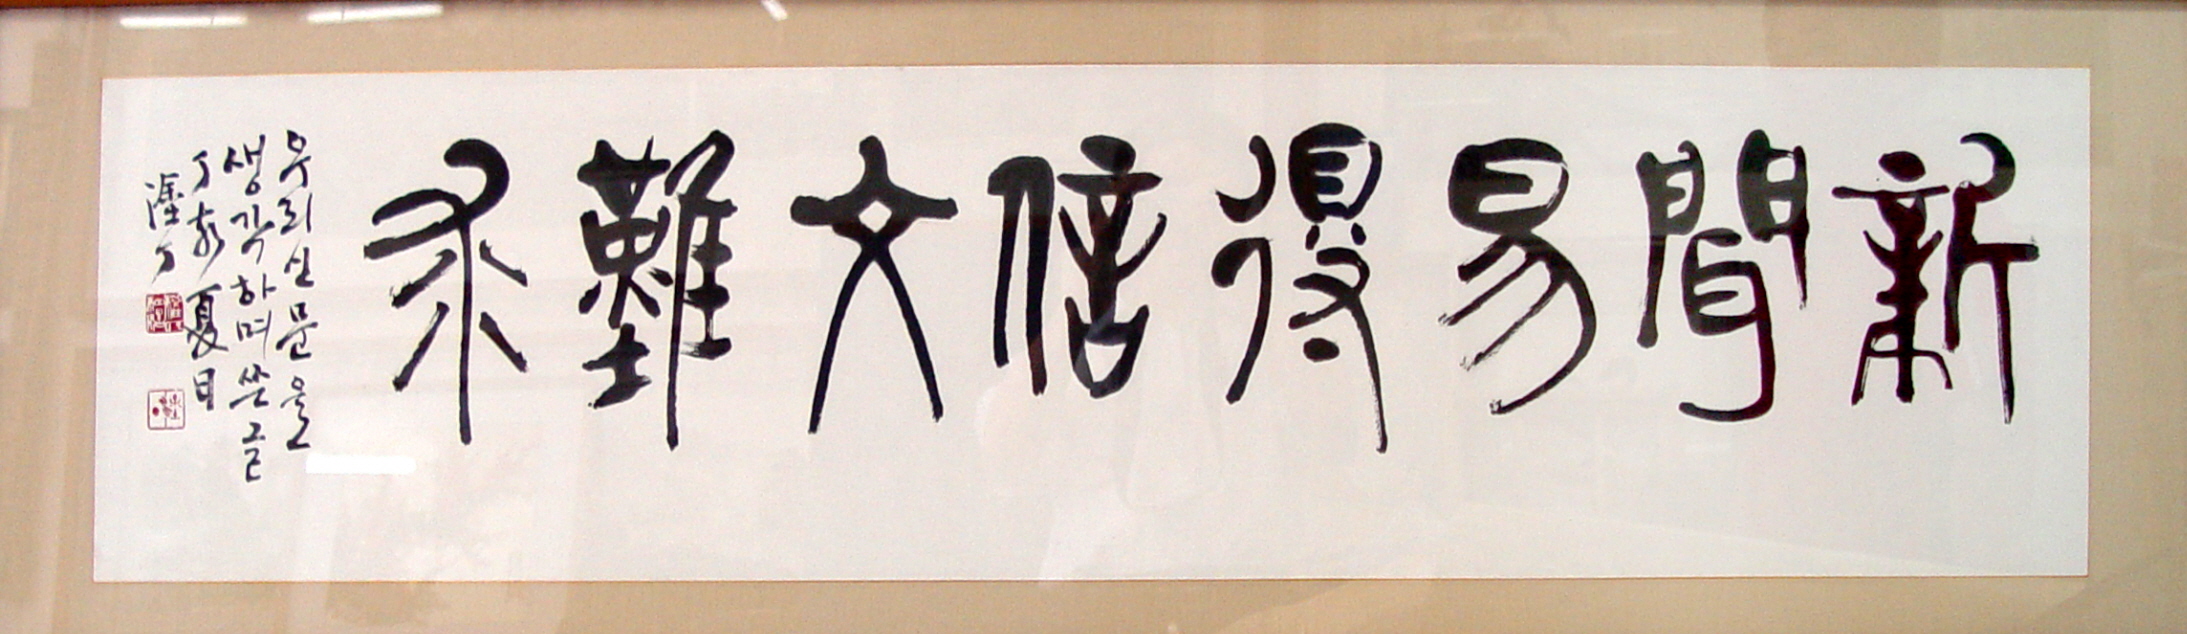 新聞易得信文難求
우리 신문을
생각하며 쓴 글
丁亥 夏日